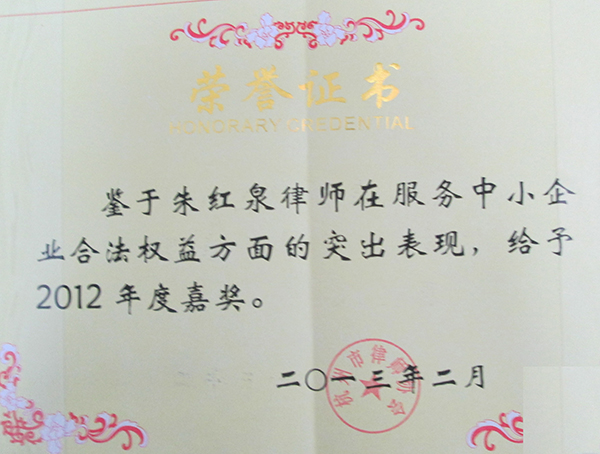 荣誉证书
HONORARY CREDENTIAL
鉴于朱红泉律师在服务中小企
业合法权益方面的突出表现，给予
2012年度嘉奖。
杭州市律师协会
二〇一三年二月